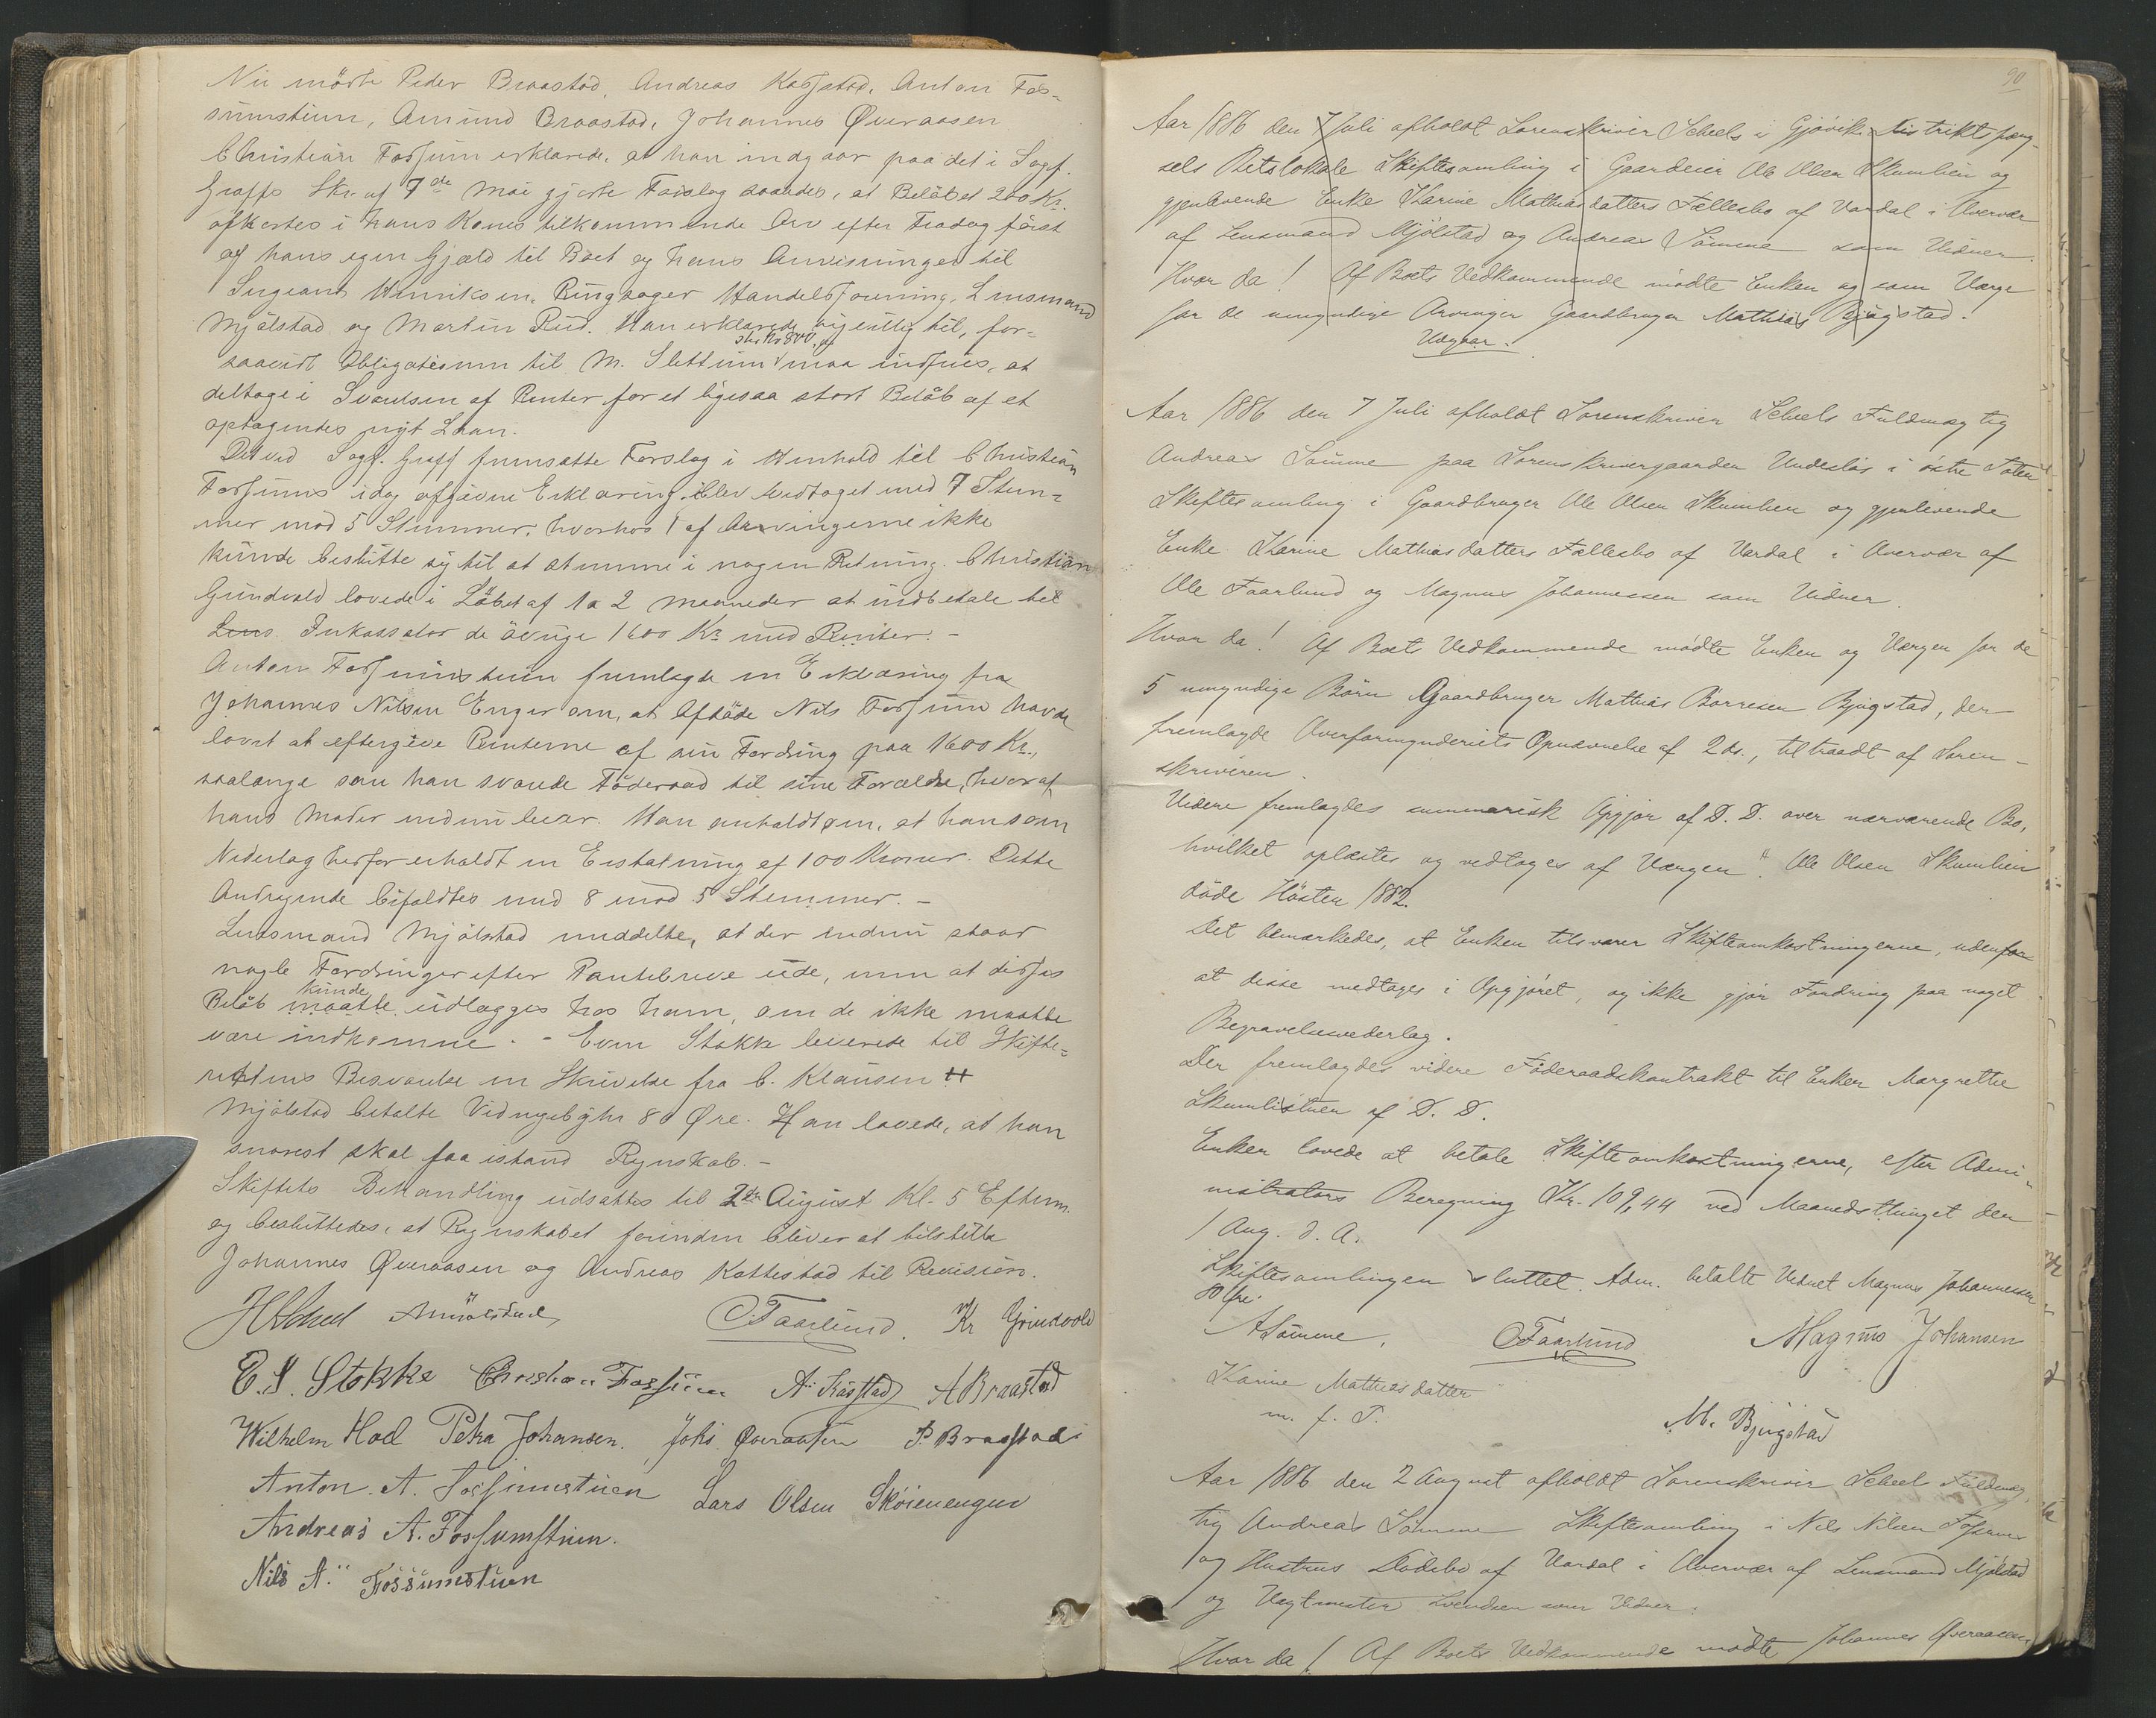 Nu mødte Peder Braastad, Andreas Kassstad, Anton Fos-
sumstuen, Amund Braastad, Johannes Øveraasen
Christian Fossum erklærede, at han indgaar paa det i Sagf.
Graffs Skr. af 7de Mai gjorte Forslag saaledes, at Beløbet 200 Kr.
afkortes i hans Kones tilkommende Arv efter Fradrag først
af hans egen Gjæld til Boet og hans Anvisninger til
Sergeant Henriksen, Ringsager Handelsforening, Lensmand
Mjølstad og Martin Rud. Han erklærede sig villig til, for-
saavidt Obligationen til M. Slettum stor Kr 800, maa indfries, at
deltage i Svarelsen af Renter for et ligesaa stort Beløb af et
optagendes nyt Laan.
Det ved Sagf. Graff fremsatte Forslag i Henhold til Christian
Fossums idag afgivne Erklæring blev vedtaget med 7 Stem-
mer mod 5 Stemmer, hvorhos 1 af Arvingerne ikke
kunde beslutte sig til at stemme i nogen Retning. Christian
Grundvold lovede i Løbet af 1 a 2 Maaneder at indbetale til
Lens Inkassator de øvrige 1600 Kr med Renter. -
Anton Fossumstuen fremlagde en Erklæring fra
Johannes Nilsen Enger om, at Afdøde Nils Fossum havde
lovet at eftergive Renterne af sin Fordring paa 1600 Kr.,
saalænge som han svarede Føderaad til sine Forældre, hvoraf
hans Moder endnu lever. Han anholdt om, at han som
Vederlag herfor erholdt en Erstatning af 100 Kroner. Dette
Andragende bifaldtes med 8 mod 5 Stemmer. -
Lensmand Mjølstad meddelte, at der endnu staar
nogle Fordringer efter Pantebreve ude, men at disses
Beløb maatte kunde udlægges hos ham, om de ikke maatte
være indkomne. - Even Stokke leverede til Skifte-
rettens Besvarelse en Skrivelse fra C. Klausen
Mjølstad betalte Vidnegebyhr 80 Øre. Han lovede, at han
snarest skal faa istand Regnskab. -
Skiftets Behandling udsattes til 2den August Kl. 5 Efterm.
og besluttedes, at Regnskabet forinden bliver at tilstille
Johannes Øveraasen og Andreas Kattestad til Revision.
HScheel AMjølstad OFaarlund. Kr Grindvold
E. S. Stokke Christian Fossum A. Kasstad A Braastad
Wilhelm Hoel Petra Johansen. Johs. Øveraasen P. Braastad
Anton. A. Fossumstuen Lars Olsen Skøienengen
Andreas A. Fossumstuen.
Nils A. Fossumstuen
90
Aar 1886 den 7 Juli afholdt Sorenskriver Scheels i Gjøvik Distriktsfæng-
sels Retslokale Skiftesamling i Gaardeier Ole Olsen Skumlien og
gjenlevende Enke Karine Mathiasdatters Fællesbo af Vardal i Overvær
af Lensmand Mjølstad og Andreas Sømme som Vidner.
Hvor da! Af Boets Vedkommende mødte Enken og som Værge
for de umyndige Arvinger Gaardbruger Mathias Bjugstad.
Udgaar.
Aar 1886 den 7 Juli afholdt Sorenskriver Scheels Fuldmægtig
Andreas Sømme paa Sorenskrivergaarden Undesløs i østre Toten
Skiftesamling i Gaardbruger Ole Olsen Skumlien og gjenlevende
Enke Karine Mathiasdatters Fællesbo af Vardal i Overvær af
Ole Faarlund og Magnus Johannessen som Vidner.
Hvor da! Af Boets Vedkommende mødte Enken og Værgen for de
5 umyndige Børn Gaardbruger Mathias Borresen Bjugstad, der
fremlagde Overformynderiets Opnævnelse af 2 ds., tiltraadt af Soren-
skriveren.
Videre fremlagdes summarisk Opgjør af D. D. over nærværende Bo,
hvilket oplæstes og vedtoges af Værgen. Ole Olsen Skumlien
døde Høsten 1882.
Det bemærkedes, at Enken tilsvarer Skifteomkostningerne, udenfor
at disse medtages i Opgjøret, og ikke gjør Fordring paa noget
Begravelsesvederlag.
Der fremlagdes videre Føderaadskontrakt til Enken Margrethe
Skumlistuen af D. D.
Enken lovede at betale Skifteomkostningerne, efter Admi-
nistrators Beregning Kr. 109,44 ved Maanedsthinget den
1 Aug. d. A.
Skiftesamlingen sluttet. Adm. betalte Vidnet Magnus Johannessen
80 Øre.
ASømme, OFaarlund Magnus Johansen
Karine Mathiasdatter
m. f. P.
M. Bjugstad
Aar 1886 den 2 August afholdt Sorenskriver Scheel Fuldmæg-
tig Andreas Sømme Skiftesamling i Nils Nilsen Fossum
og Hustrus Dødsbo af Vardal i Overvær af Lensmand Mjølstad
og Vagtmester Svendsen som Vidner.
Hvor da! Af Boets Vedkommende mødte Johannes Øveraasen